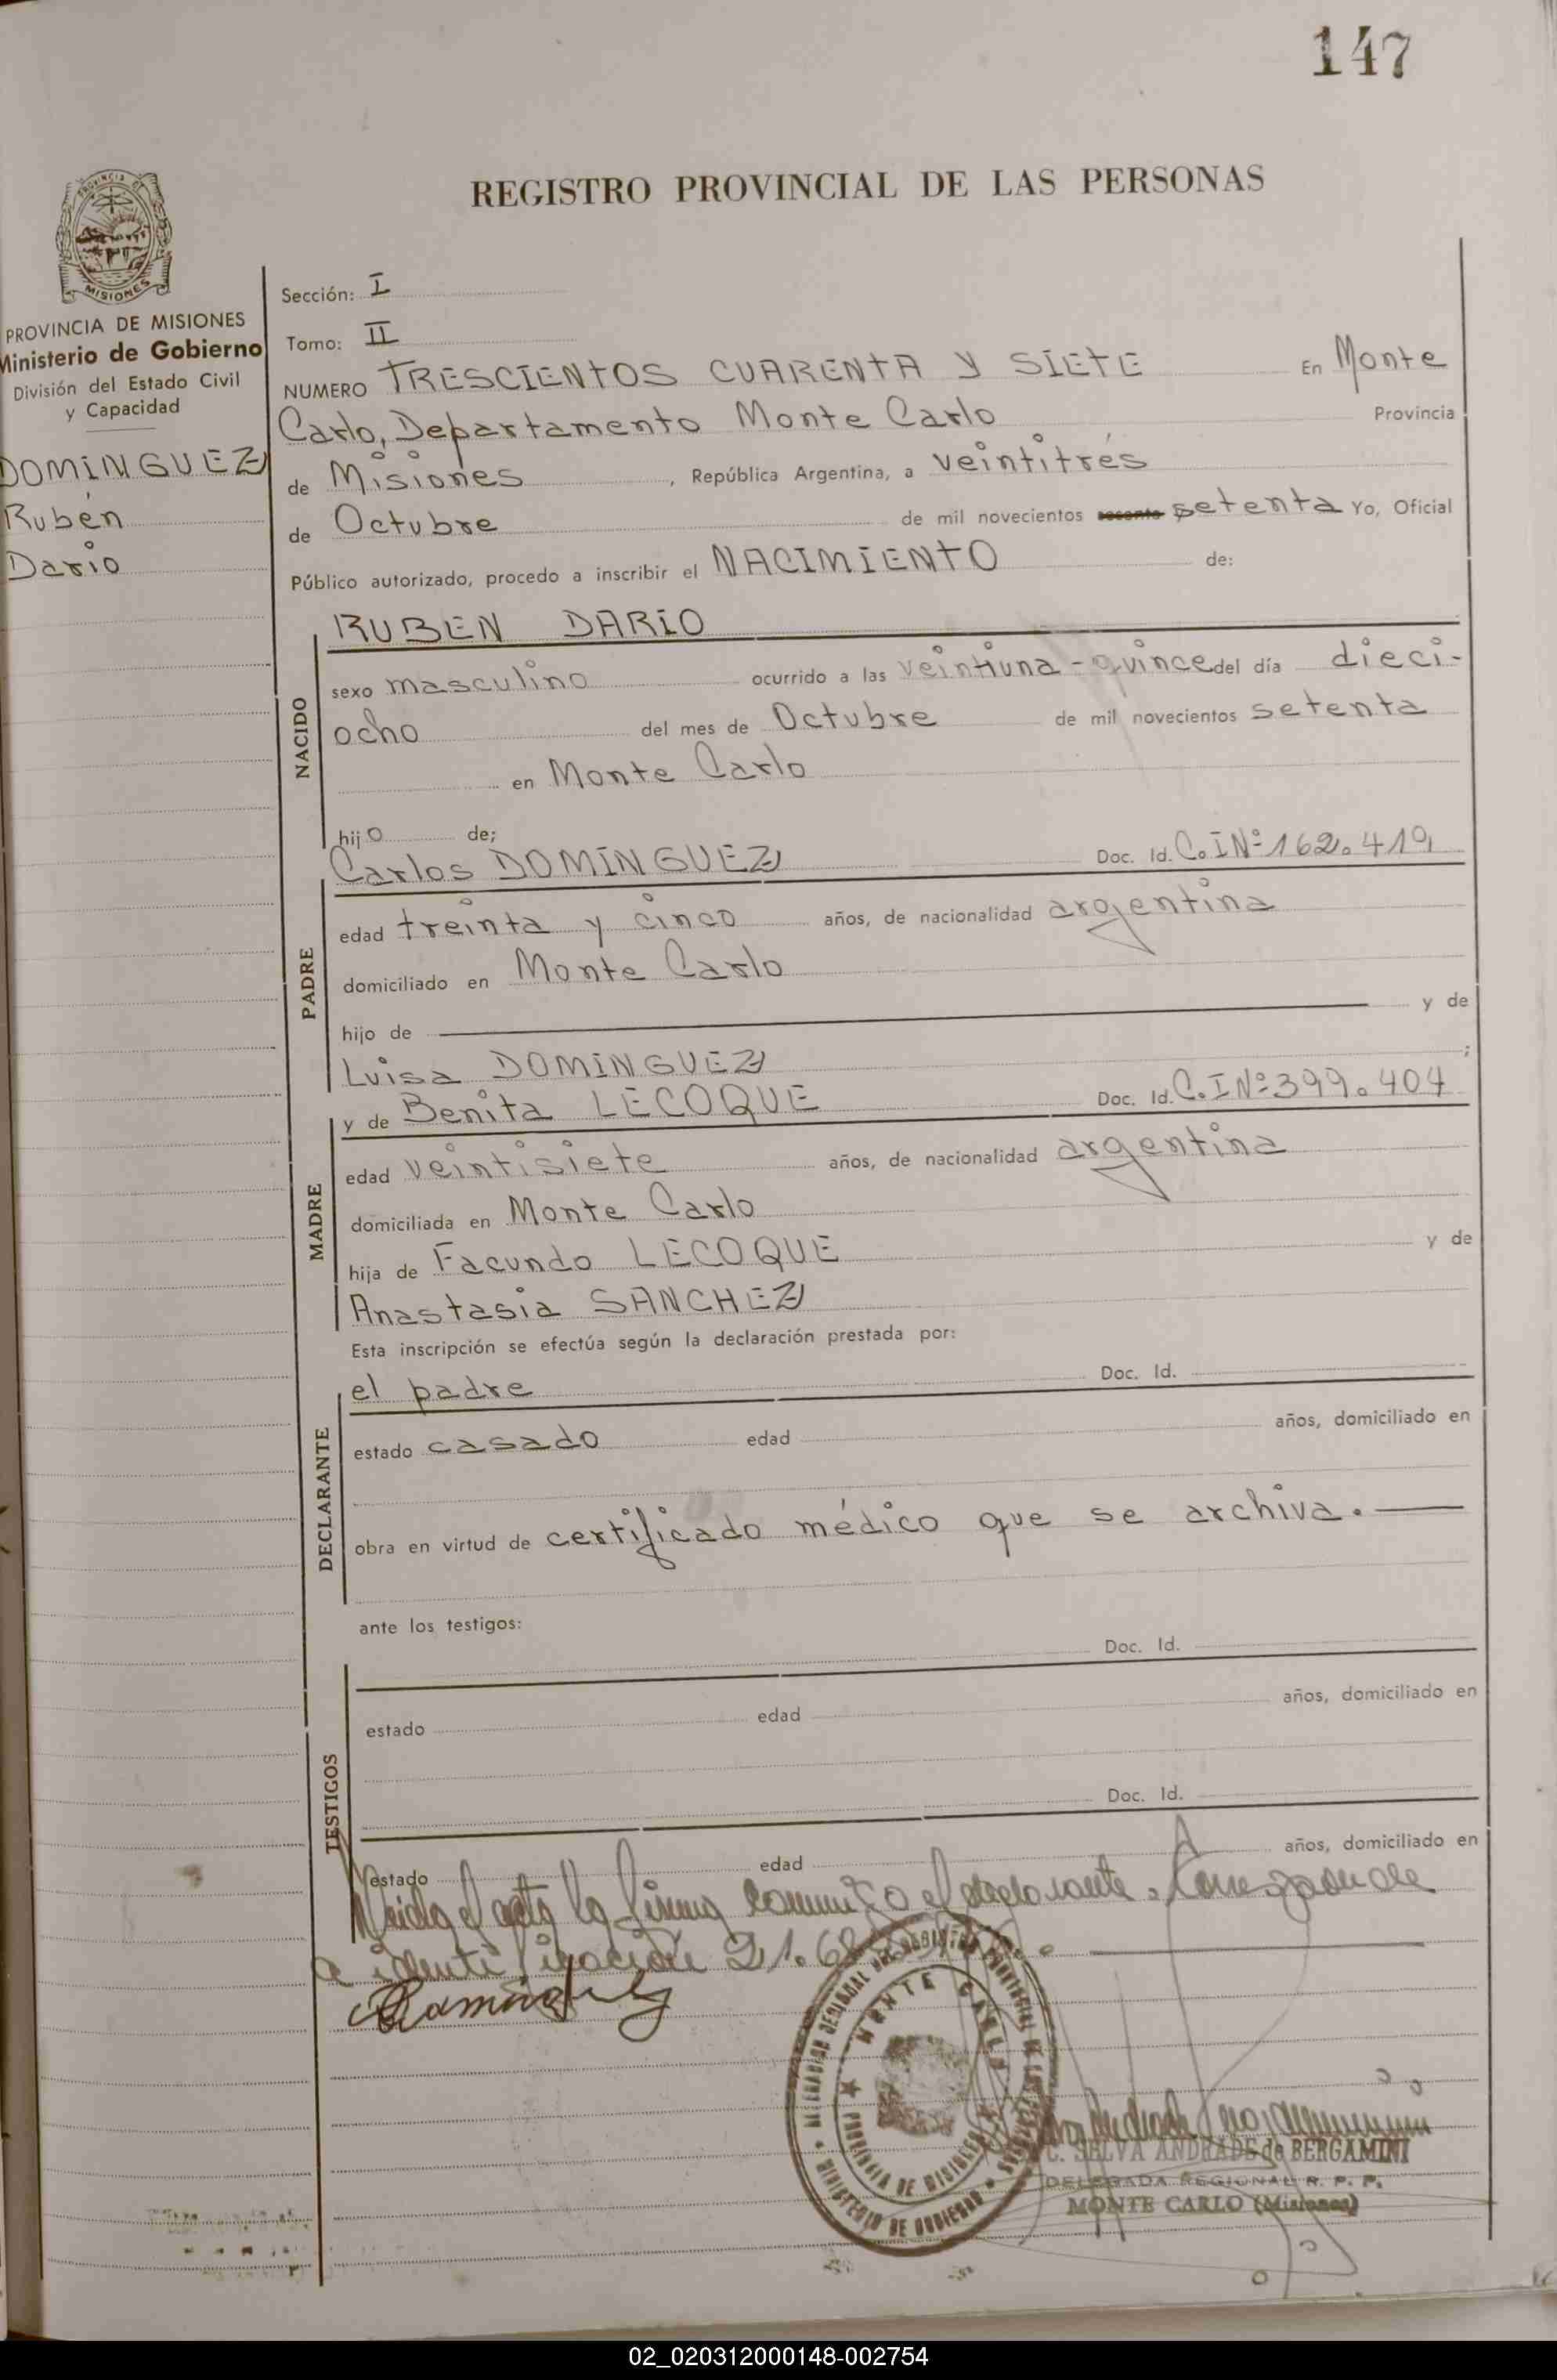 147
REGISTRO PROVINCIAL DE LAS PERSONAS
PROVINCIA DE MISIONES
MISIONES
PROVINCIA DE MISIONES
Ministerio de Gobierno
División del Estado Civil
y Capacidad
DOMINGUEZ
Rubén
Dario
Sección: I
Tomo: II
NUMERO TRESCIENTOS CUARENTA Y SIETE En Monte
Carlo, Departamento Monte Carlo Provincia
de Misiones, República Argentina, a veintitrés
de Octubre de mil novecientos sesenta setenta Yo, Oficial
Público autorizado, procedo a inscribir el NACIMIENTO de:
NACIDO
RUBEN DARIO
sexo masculino ocurrido a las veintiuna - quince del día dieci-
ocho del mes de Octubre de mil novecientos setenta
en Monte Carlo
hijo de;
PADRE
Carlos DOMINGUEZ Doc. Id. C. I Nº 162.419
edad treinta y cinco años, de nacionalidad argentina
domiciliado en Monte Carlo
hijo de y de
Luisa DOMINGUEZ ;
MADRE
y de Benita LECOQUE Doc. Id. C. I Nº 399.404
edad veintisiete años, de nacionalidad argentina
domiciliada en Monte Carlo
hija de Facundo LECOQUE y de
Anastasia SANCHEZ
Esta inscripción se efectúa según la declaración prestada por:
DECLARANTE
el padre Doc. Id.
estado casado edad años, domiciliado en
obra en virtud de certificado médico que se archiva.
ante los testigos:
TESTIGOS
Doc. Id.
estado edad años, domiciliado en
Doc. Id.
estado edad años, domiciliado en
el acta la firma conmigo el declarante. Corresponde
a identificación 21.
MONTE CARLO
PROVINCIA DE MISIONES
MINISTERIO DE GOBIERNO
C. SELVA ANDRADE de BERGAMINI
DELEGADA REGIONAL R. P. P.
MONTE CARLO (Misiones)
02_020312000148-002754